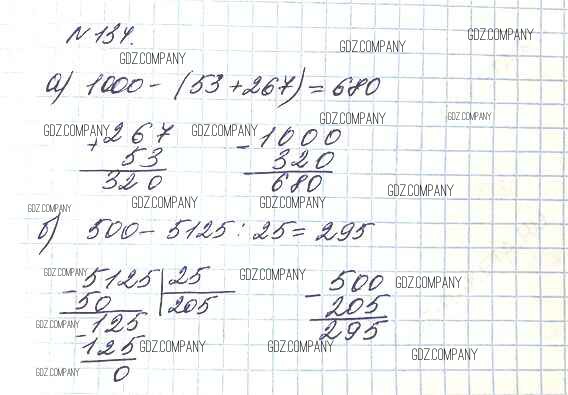 N 134.
GDZ.COMPANY GDZ.COMPANY
а) 1000 - (53 + 267) = 680
GDZ.COMPANY GDZ.COMPANY GDZ.COMPANY GDZ.COMPANY
+ 267 - 1000
53 320
320 680
GDZ.COMPANY
GDZ.COMPANY GDZ.COMPANY GDZ.COMPANY
б) 500 - 5125 : 25 = 295
GDZ.COMPANY GDZ.COMPANY GDZ.COMPANY
- 5125 | 25 - 500
50 205 205
GDZ.COMPANY
- 125 295
125
GDZ.COMPANY GDZ.COMPANY GDZ.COMPANY
0
GDZ.COMPANY